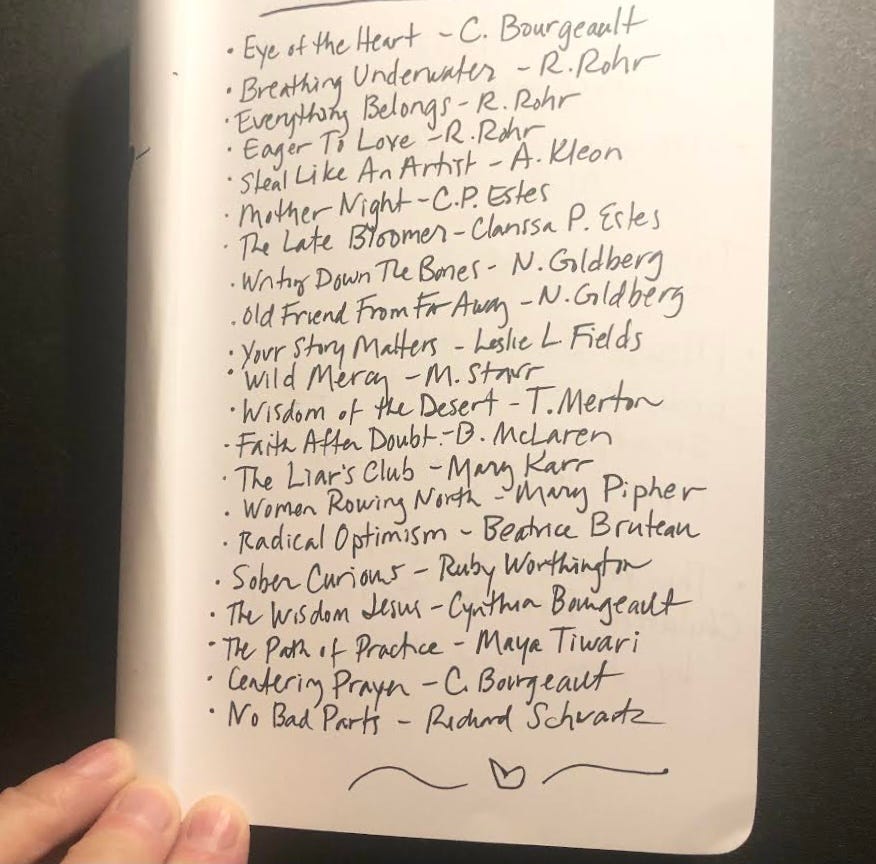 • Eye of the Heart - C. Bourgeault
• Breathing Underwater - R. Rohr
• Everything Belongs - R. Rohr
• Eager To Love - R. Rohr
• Steal Like An Artist - A. Kleon
• Mother Night - C.P. Estes
• The Late Bloomer - Clarissa P. Estes
• Writing Down The Bones - N. Goldberg
• Old Friend From Far Away - N. Goldberg
• Your Story Matters - Leslie L. Fields
• Wild Mercy - M. Starr
• Wisdom of the Desert - T. Merton
• Faith After Doubt - B. McLaren
• The Liar's Club - Mary Karr
• Women Rowing North - Mary Pipher
• Radical Optimism - Beatrice Bruteau
• Sober Curious - Ruby Worthington
• The Wisdom Jesus - Cynthia Bourgeault
• The Path of Practice - Maya Tiwari
• Centering Prayer - C. Bourgeault
• No Bad Parts - Richard Schwartz